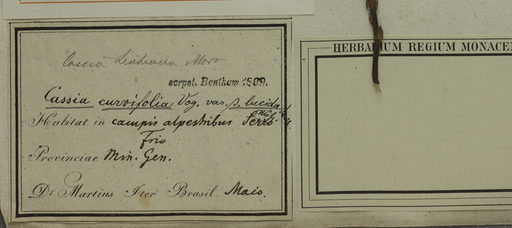 Cassia
scrpst. Bentham 1869.
HERBARIUM REGIUM MONACEN
Cassia curvifolia Vog. var. β. lucida
Habitat in campis alpestribus Serro
Frio
Provinciae Min. Gen.
Dr Martius Iter Brasil. Maio.